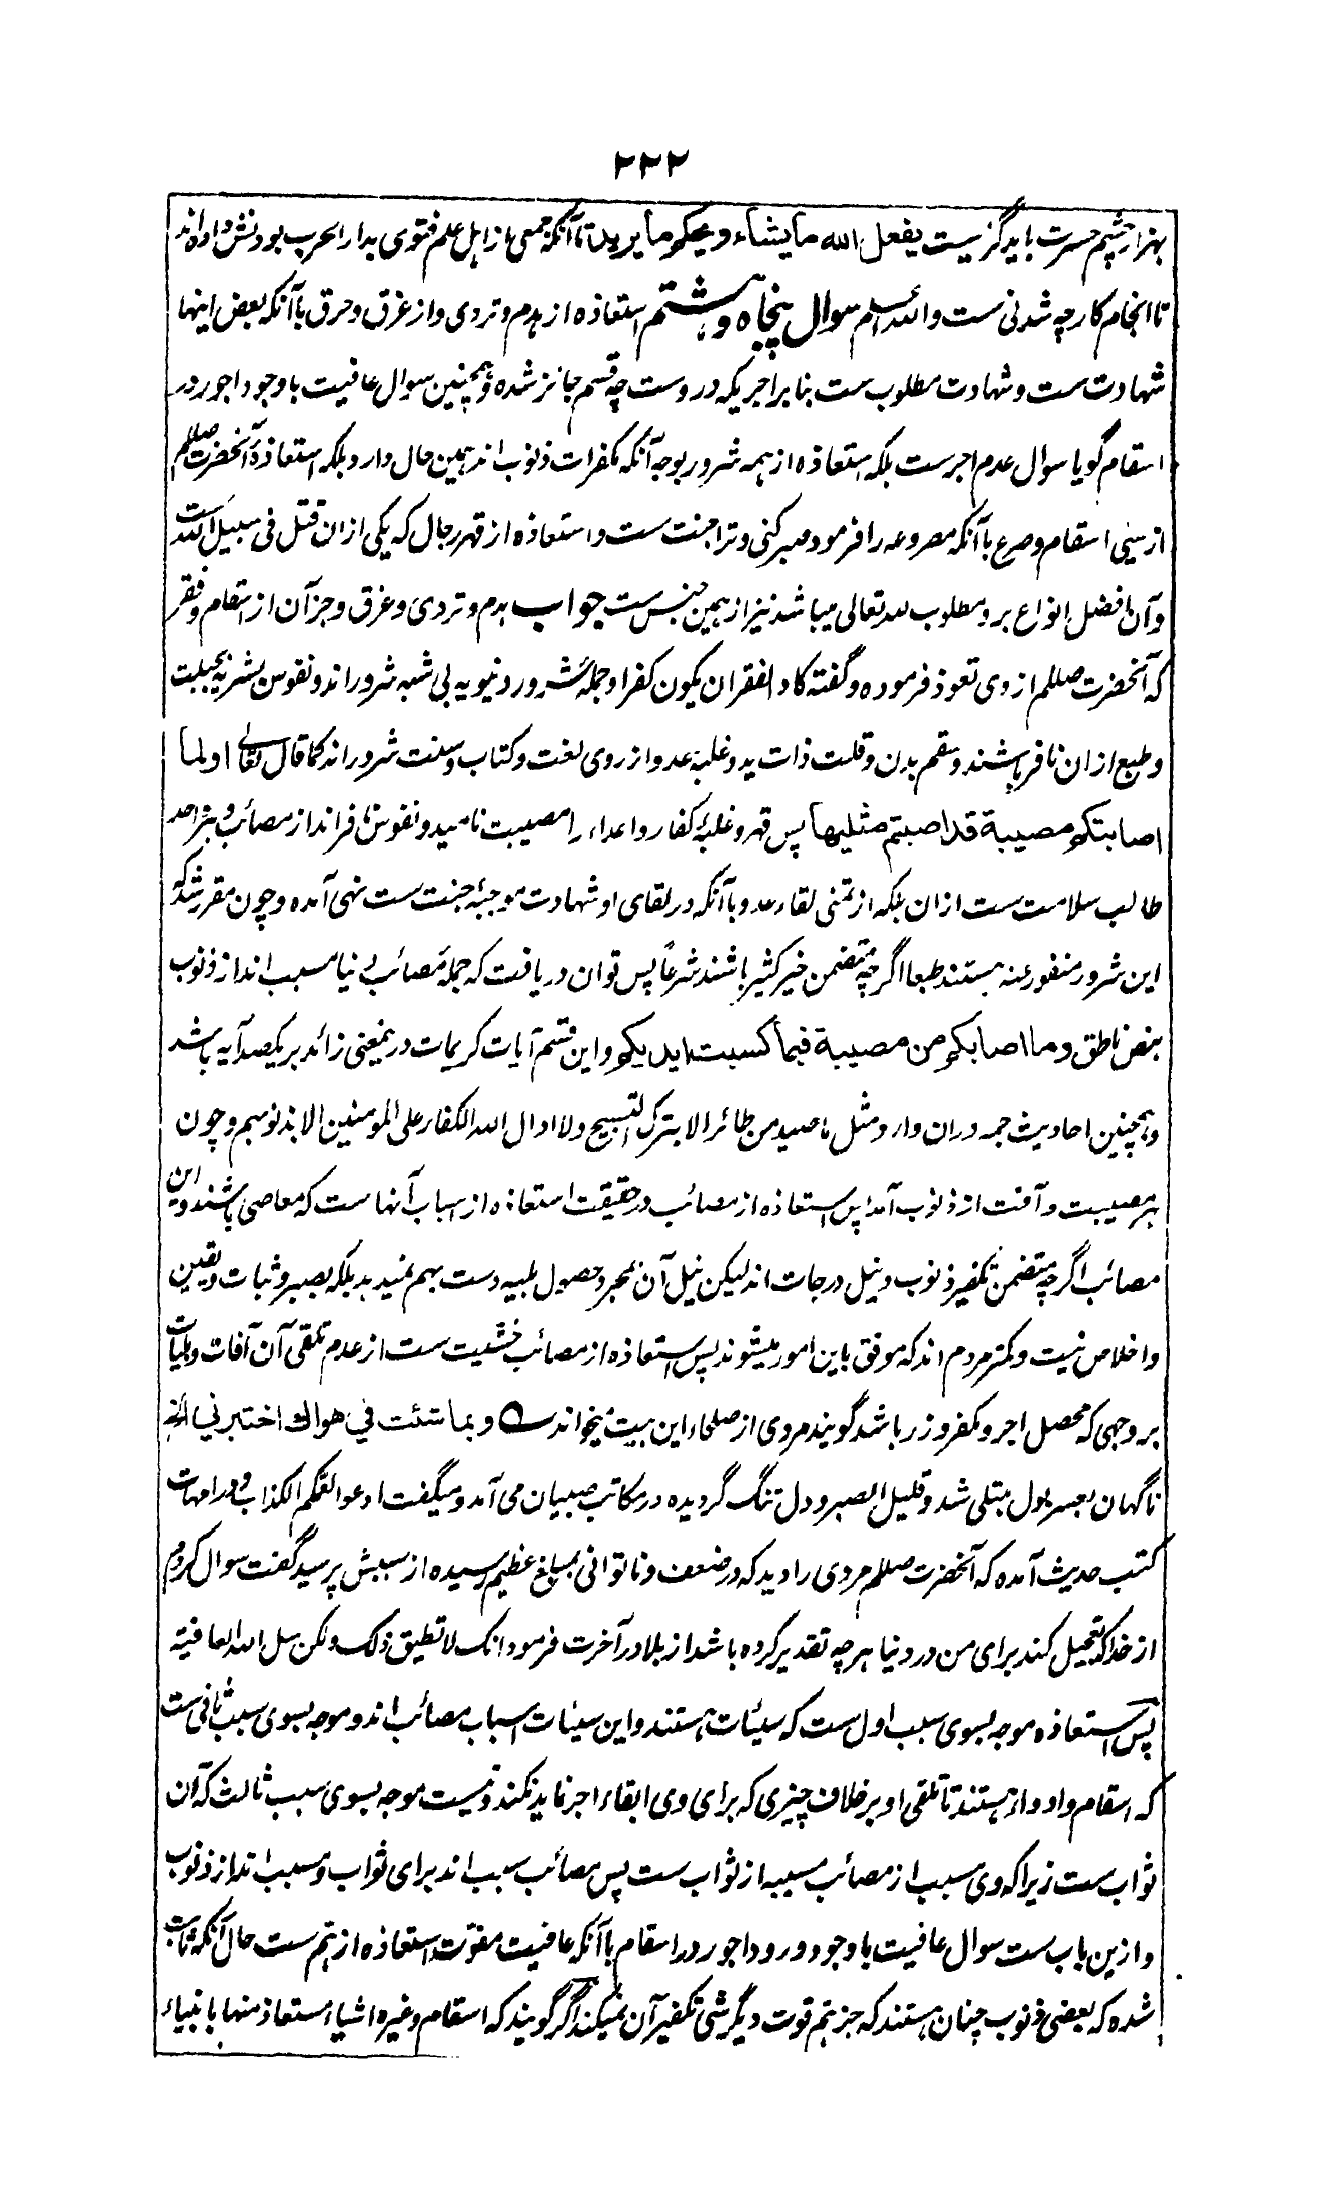 ۲۲۲
بهزار چشم حسرت باید گریست یفعل الله ما یشاء و یحکم ما یرید تا آنکه جمعی از اهل علم فتوی بدار الحرب بودنش داده اند
تا انجام کار چه شدنی ست والله اعلم سوال پنجاه و هشتم استعاذه از هدم و تردی و از غرق و حرق با آنکه بعض اینها
شهادت ست و شهادت مطلوب ست بنا بر اجریکه دروست چه قسم جائز شده و همچنین سوال عافیت با وجود اجور در
اسقام گویا سوال عدم اجرست بلکه استعاذه از همه شرور بوجه آنکه مکفرات ذنوب اند همین حال دارد بلکه استعاذۀ آنحضرت صللم
از سیئ اسقام و صرع با آنکه مصروعه را فرمود صبر کنی و ترا جنت ست و استعاذه از قهر رجال که یکی ازان قتل فی سبیل الله ست
و آن افضل انواع بر و مطلوب لله تعالی میباشد نیز از همین جنس ست جواب هدم و تردی و غرق و جز آن از اسقام و فقر
که آنحضرت صللم از وی تعوذ فرموده و گفته کاد الفقر ان یکون کفرا و جملۀ شرور دنیویه بی شبه شرور اند و نفوس بشریه بجبلت
و طبع ازان نافر باشند و سقم بدن و قلت ذات ید و غلبۀ عدو از روی لغت و کتاب و سنت شرور اند کما قال تعالی اولما
اصابتکم مصیبة قد اصبتم مثلیها پس قهر و غلبۀ کفار و اعداء را مصیبت نامید و نفوس نافر اند از مصائب و هر احد
طالب سلامت ست ازان بلکه از تمنی لقاء عدو با آنکه در لقای او شهادت موجبۀ جنت ست نهی آمده و چون مقرر شد که
این شرور منفور عنه هستند طبعا اگرچه متضمن خیر کثیر باشند شرعاً پس توان دریافت که جملۀ مصائب دنیا مسبب اند از ذنوب
بنص ناطق وما اصابکم من مصیبة فبما کسبت ایدیکم و این قسم آیات کریمات درینمعنی زائد بر یکصد آیه باشد
و همچنین احادیث جمه دران وارد مثل ما صید من طائر الا بترک التسبیح ولا ادال الله الکفار علی المومنین الا بذنوبهم و چون
هر مصیبت و آفت از ذنوب آمد پس استعاذه از مصائب در حقیقت استعاذه از اسباب آنهاست که معاصی باشند و این
مصائب اگرچه متضمن تکفیر ذنوب و نیل درجات اند لیکن نیل آن بمجرد حصول بلیه دست بهم نمیدهد بلکه بصبر و ثبات و یقین
و اخلاص نیت و کمتر مردم اند که موفق باین امور میشوند پس استعاذه از مصائب خشیت ست از عدم تلقی آن آفات و بلیات
بر وجهی که محصل اجر و مکفر وزر باشد گویند مردی از صلحاء این بیت میخواند ه وبما شئت في هواك اختبرني
ناگهان بعسر بول مبتلی شد و قلیل الصبر و دل تنگ گردیده در مکاتب صبیان می آمد و میگفت ادعوا لعمکم الکذاب و در امهات
کتب حدیث آمده که آنحضرت صللم مردی را دید که در ضعف و ناتوانی بمبلغ عظیم رسیده از سببش پرسید گفت سوال کردم
از خدا که تعجیل کند برای من در دنیا هر چه تقدیر کرده باشد از بلا در آخرت فرمود انک لا تطیق ذلک ولکن سل الله العافیة
پس استعاذه موجه بسوی سبب اول ست که سیئات هستند و این سیئات اسباب مصائب اند و موجه بسوی سبب ثانی ست
که اسقام و ادواء هستند تا تلقی او بر خلاف چیزی که برای وی ابقاء اجر نماید نکند و نیست موجه بسوی سبب ثالث که آن
ثواب ست زیرا که وی مسبب از مصائب مسببه از ثواب ست پس مصائب سبب اند برای ثواب و مسبب اند از ذنوب
و ازین باب ست سوال عافیت با وجود ورود اجور در اسقام با آنکه عافیت مفوت استعاذه از هم ست حال آنکه ثابت
شده که بعضی ذنوب چنان هستند که جز هم قوت دیگر شی تکفیر آن نمیکند اگر گویند که اسقام و غیره اشیاء مستعاذ منها با نبیاء